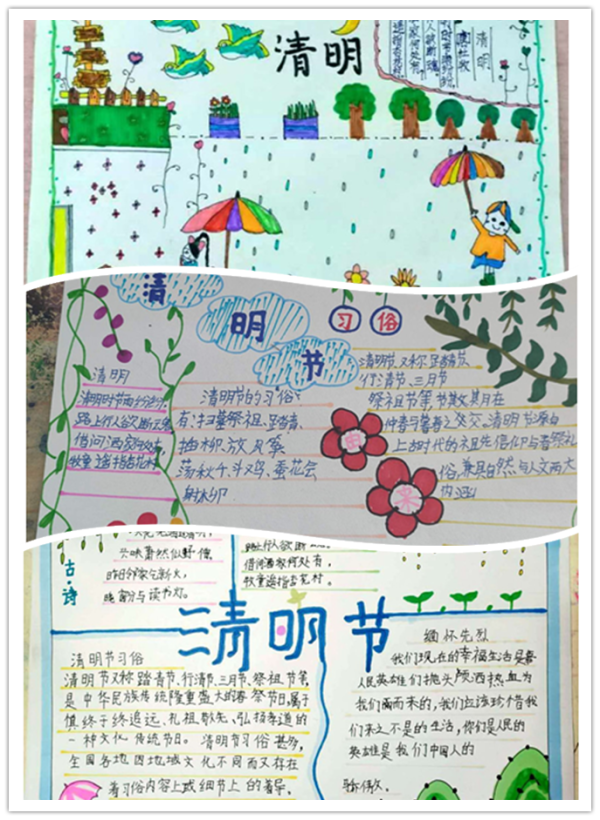 清明
清明
清明节
习俗
清明
清明时节雨纷纷，
路上行人欲断魂
借问酒家何处有，
牧童遥指杏花村
清明节的习俗
有:扫墓祭祖、踏青、
抽柳、放风筝
荡秋千、斗鸡、蚕花会
射柳
清明节,又称踏青节、
行清节、三月节
祭祖节等,节期在
仲春与暮春之交。清明节源自
上古时代的祖先信仰与春祭礼
俗,兼具自然与人文两大
内涵
古诗
昨日邻家乞新火，
晓窗分与读书灯。
路上行人欲断魂。
借问酒家何处有，
牧童遥指杏花村。
清明节
清明节习俗
清明节又称踏青节、行清节、三月节、祭祖节等,
是中华民族传统隆重盛大的春祭节日,属于
慎终于终追远、礼祖敬先、弘扬孝道的
一种文化传统节日。清明节习俗甚多,
全国各地因地域文化不同而又存在
着习俗内容上或细节上的差异。
缅怀先烈
我们现在的幸福生活是靠
人民英雄们抛头颅洒热血为
我们换而来的,我们应该珍惜我
们来之不易的生活,你们是人民的
英雄是我们中国人的
骄傲。